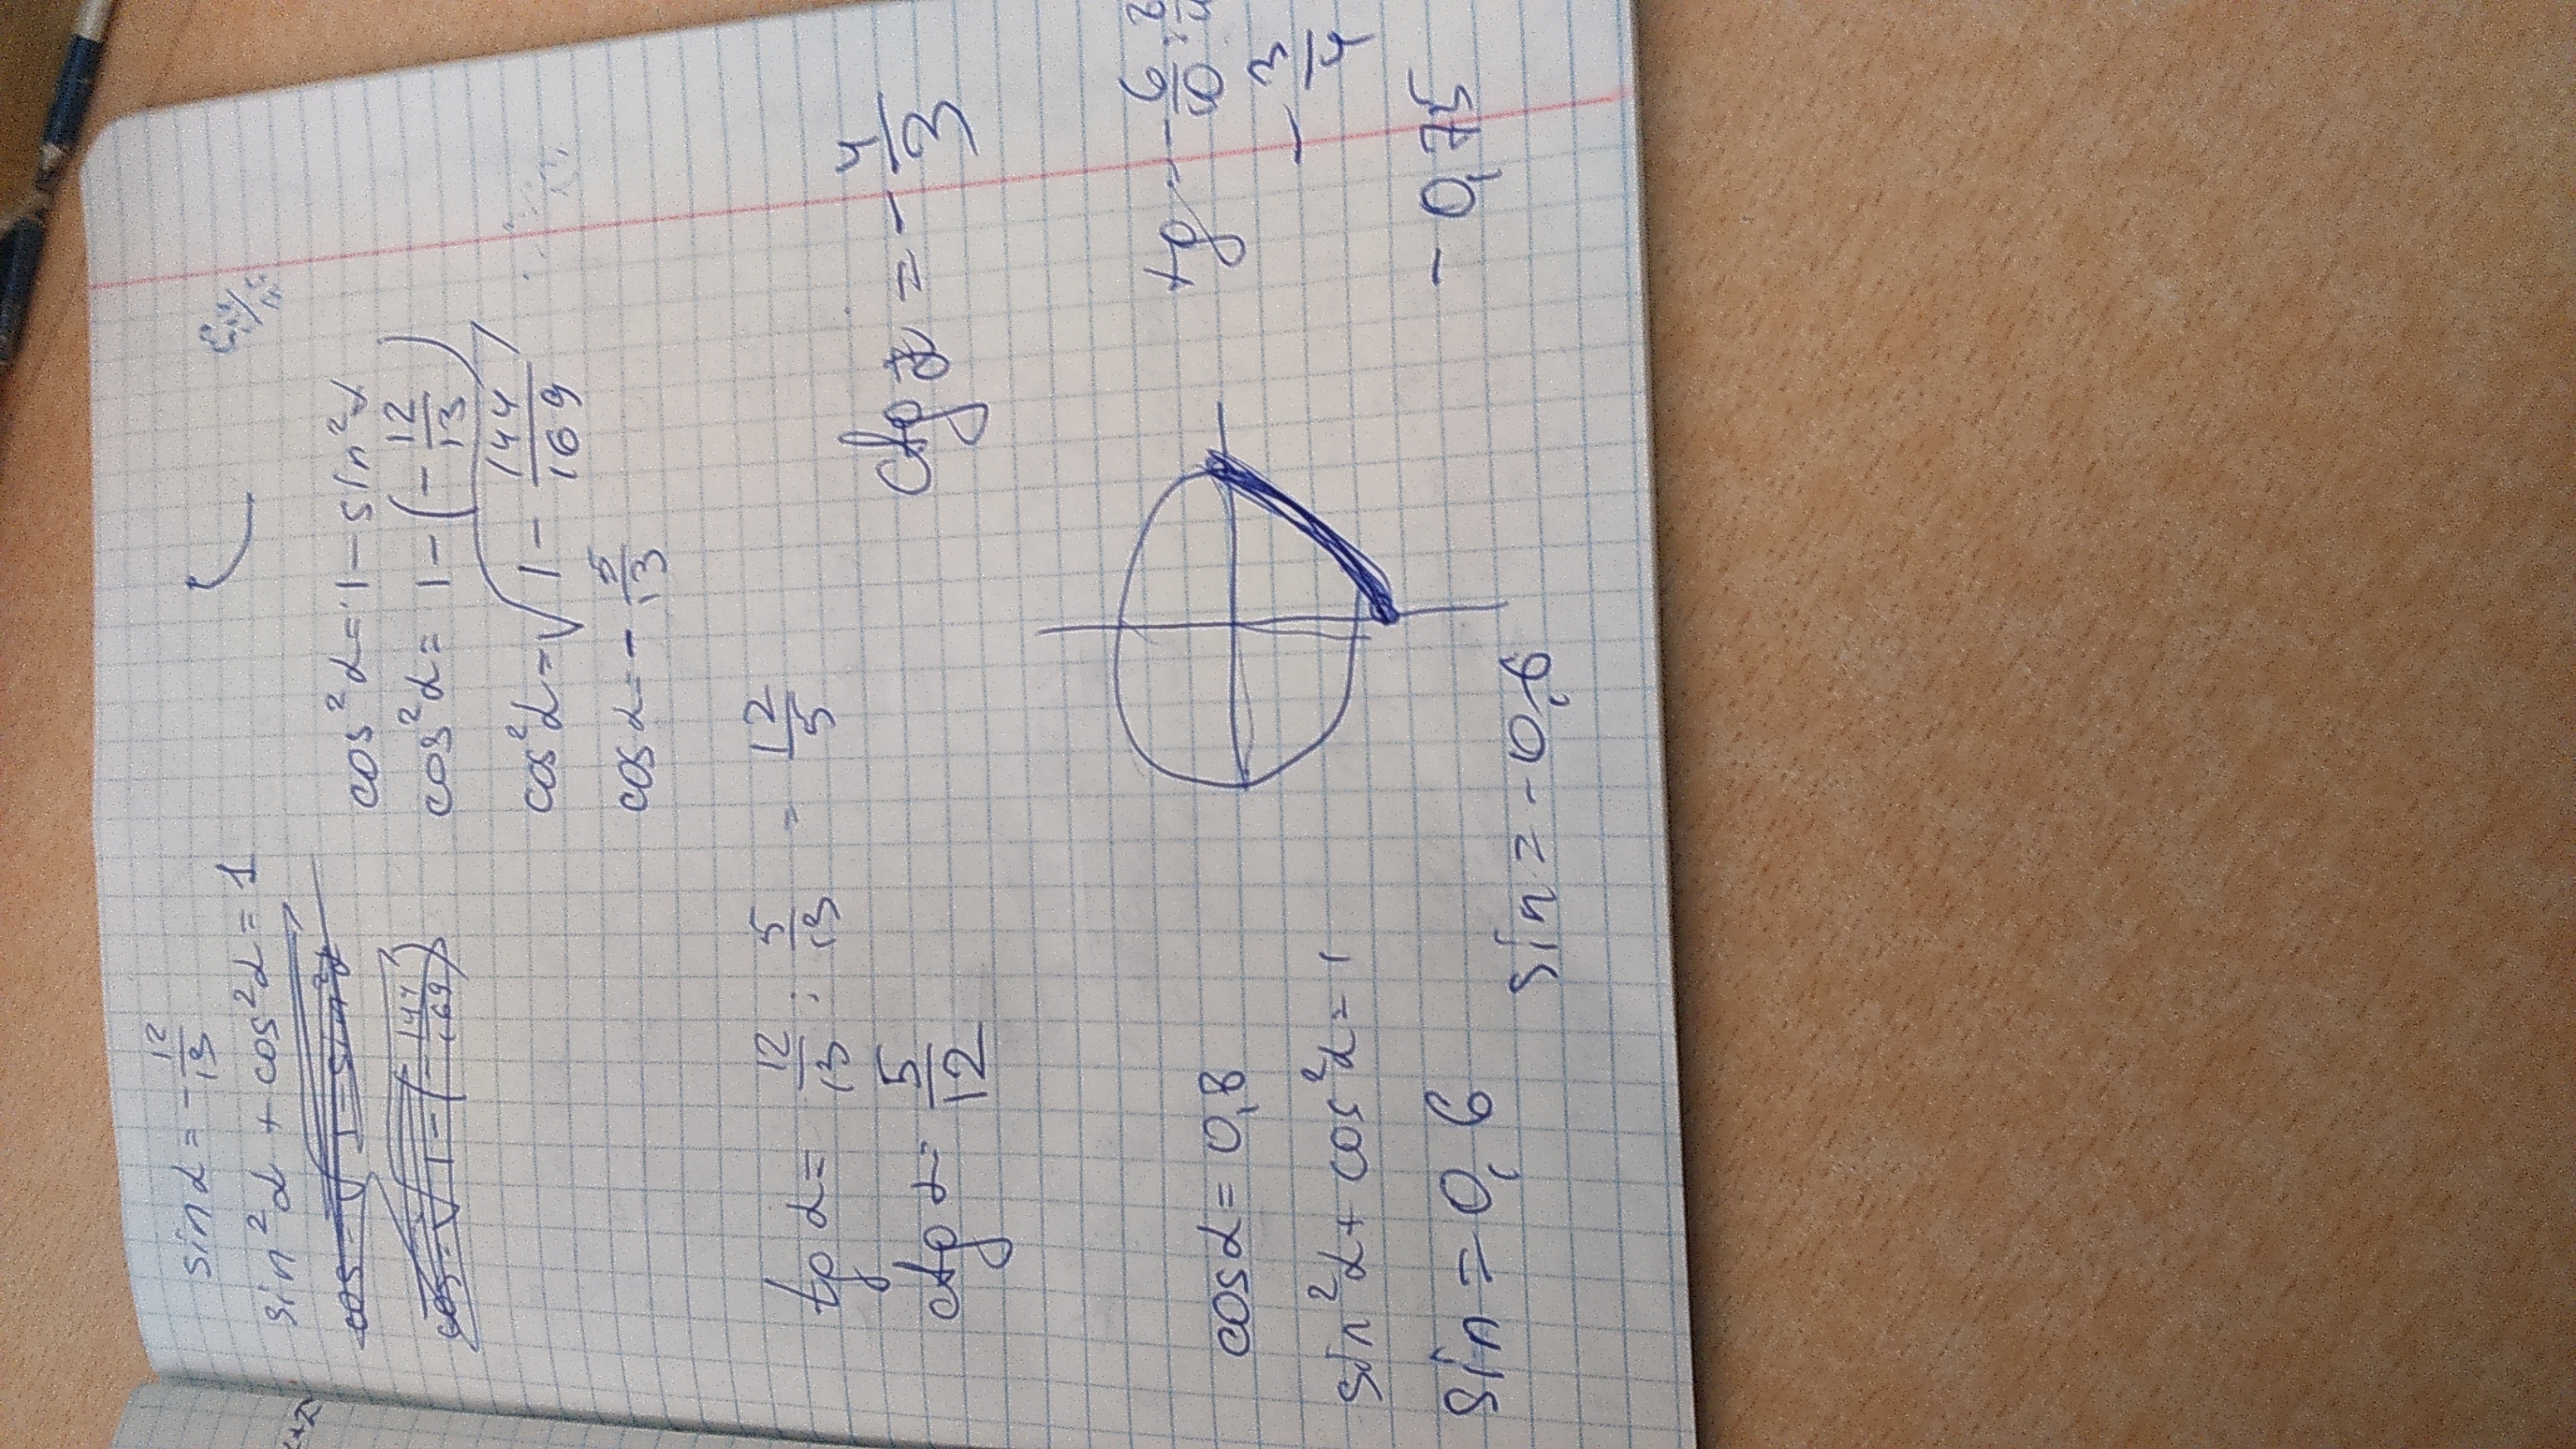 sin α = - 12/13
sin²α + cos²α = 1
cos²α = 1 - sin²α
cos²α = 1 - (- 12/13)
cos²α = √(1 - 144/169)
cos α = - 5/13
tg α = 12/13 : 5/13 = 12/5
ctg α = 5/12
ctg α = - 4/3
cos α = 0,8
sin²α + cos²α = 1
sin = 0,6
sin = - 0,6
tg = - 6/10 :
- 3/4
- 0,75